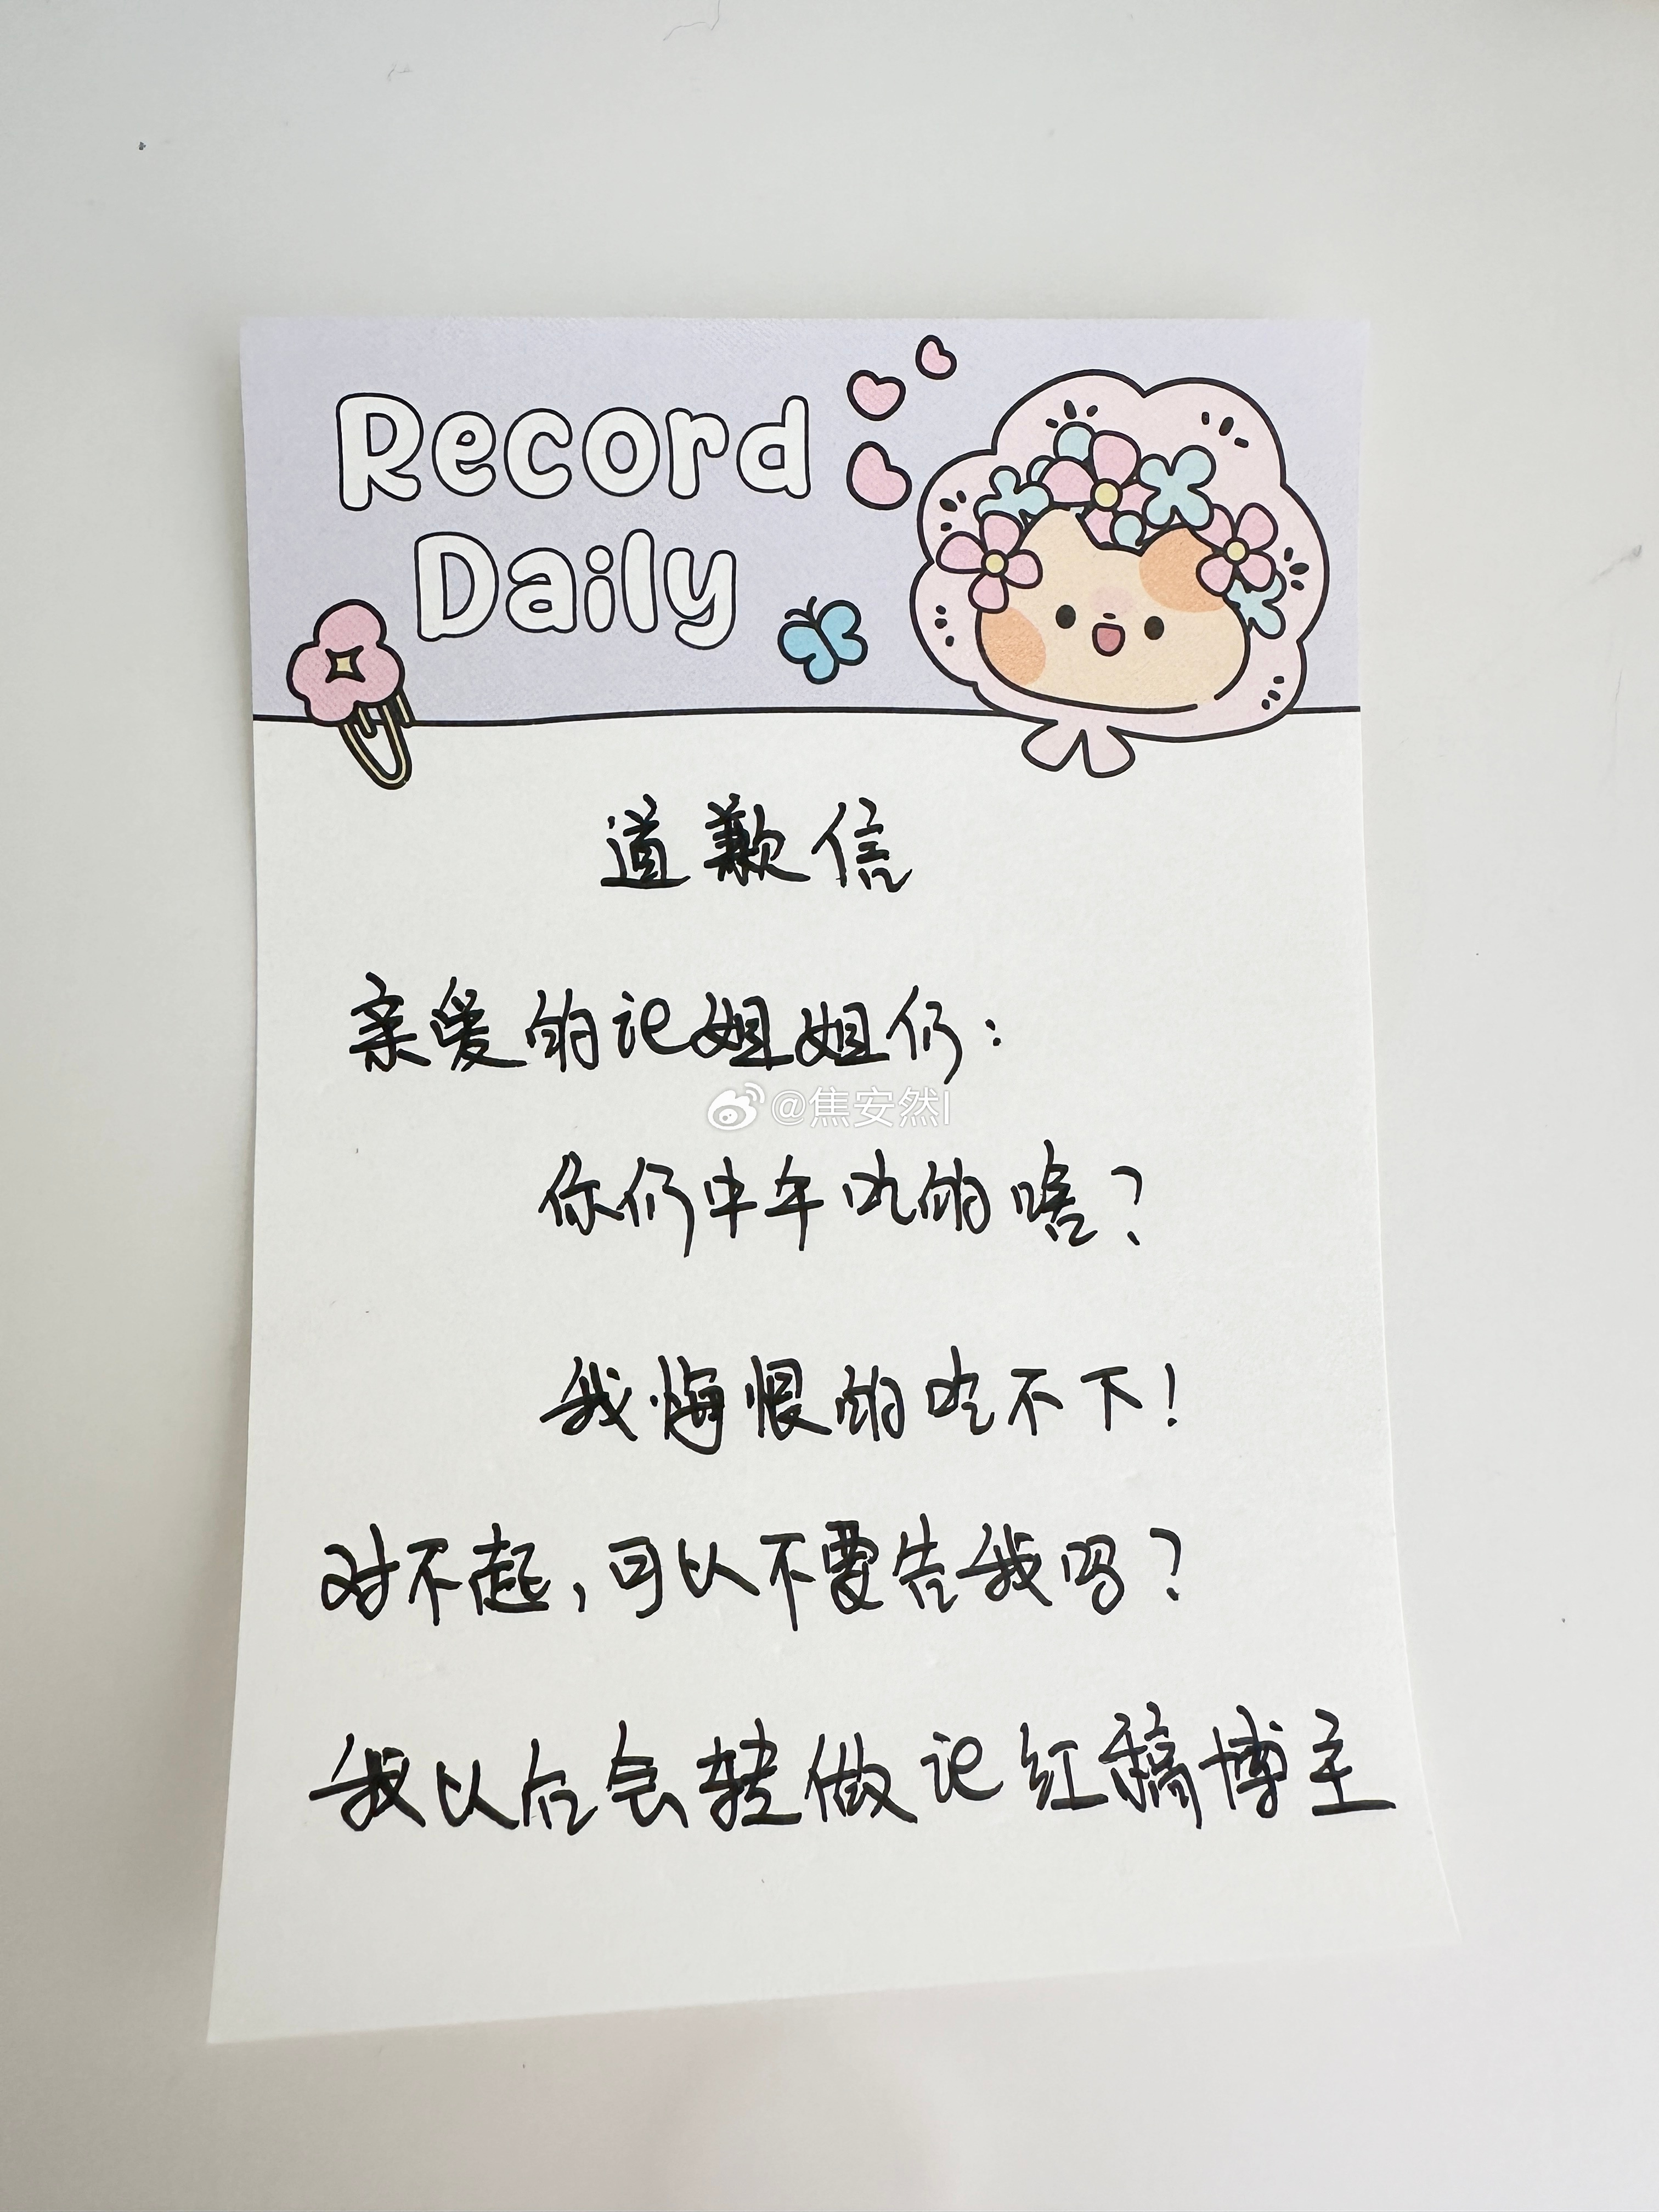 Record
Daily
道歉信
亲爱的记姐姐们：
@焦安然l
你们中午吃的啥？
我悔恨的吃不下！
对不起，可以不要告我吗？
我以后会转做记红稿博主